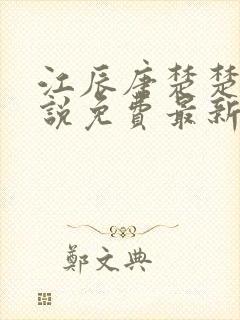 江辰唐楚楚
說免費最新
鄭文典